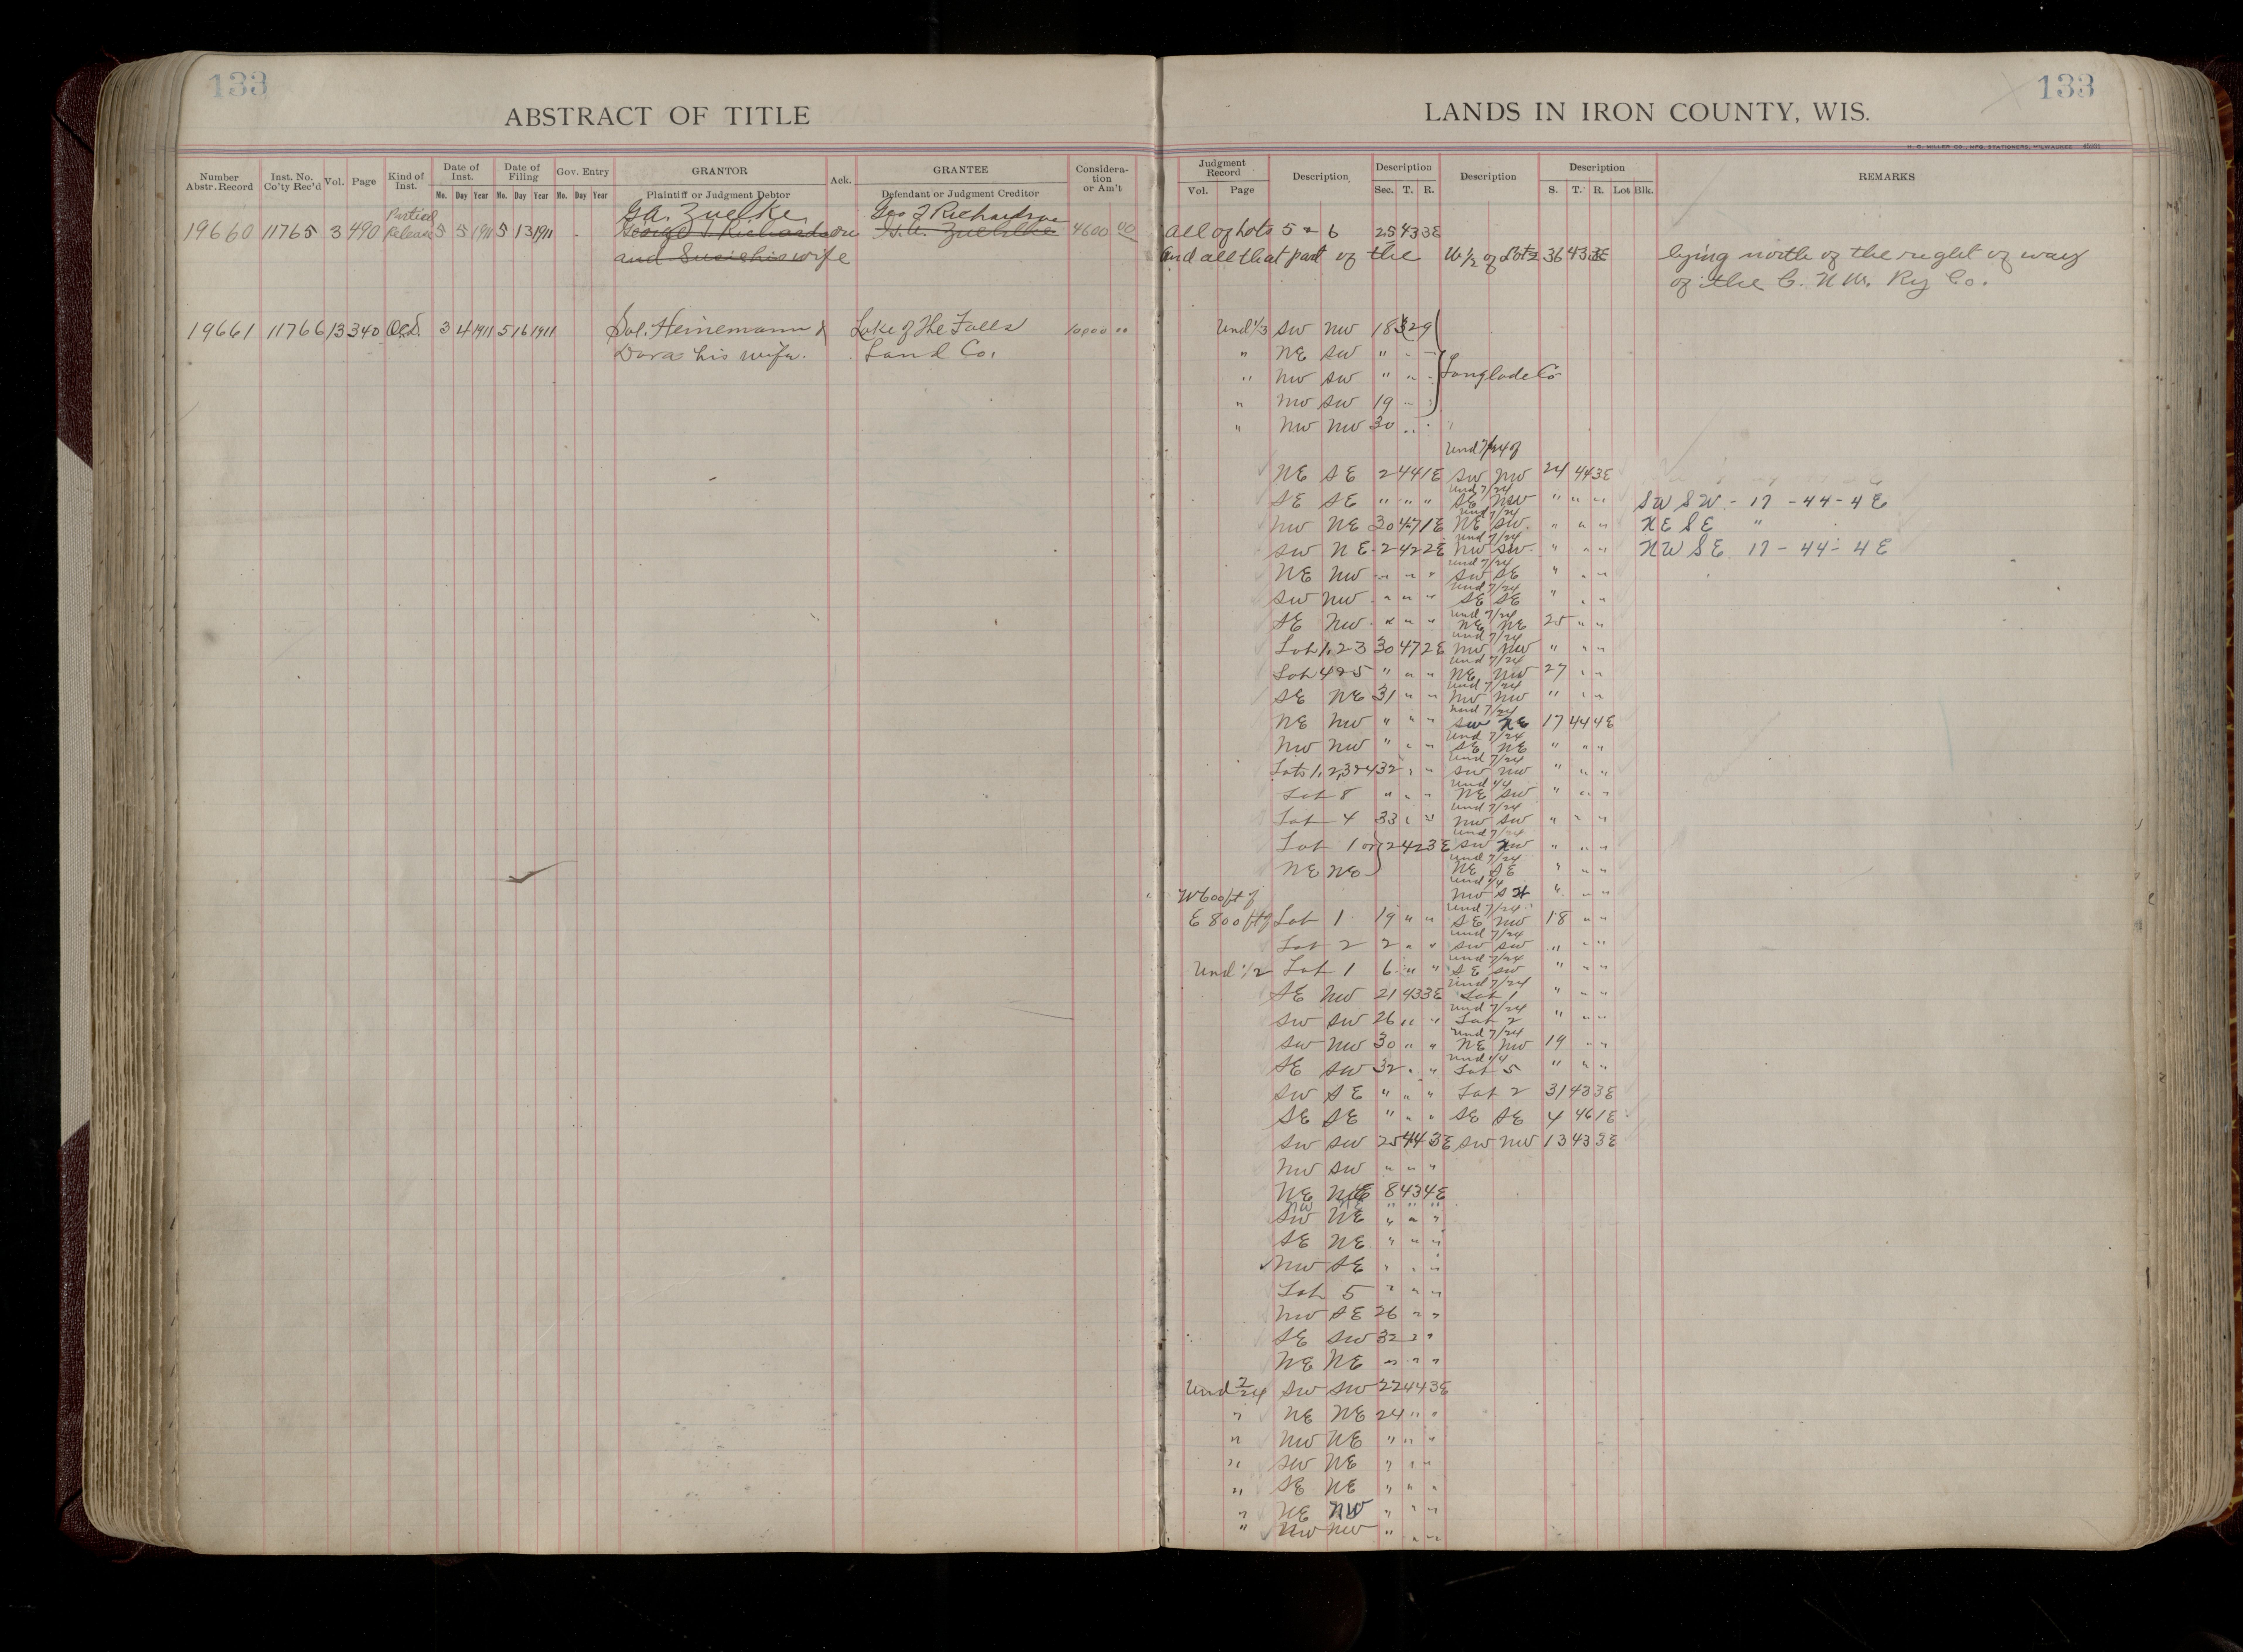 133
ABSTRACT OF TITLE
Number Abstr. Record
Inst. No. Co'ty Rec'd
Vol.
Page
Kind of Inst.
Date of Inst.
Mo. Day Year
Date of Filing
Mo. Day Year
Gov. Entry
Mo. Day Year
GRANTOR
Plaintiff or Judgment Debtor
Ack.
GRANTEE
Defendant or Judgment Creditor
Considera-tion or Am't
G.A. Zuelke Geo T Richardson
19660 11765 3 490 Partial Release 5 5 1911 5 13 1911 George T Richardson G.A. Zuehlke 4600 00
and Susie his wife
19661 11766 13 340 Q.C.D. 3 4 1911 5 16 1911 Sol. Heinemann & Lake of the Falls 10000 00
Dora his wife. Land Co.
133
LANDS IN IRON COUNTY, WIS.
H. C. MILLER CO., MFG. STATIONERS, MILWAUKEE
Judgment Record
Vol. Page
Description
Description
Sec. T. R.
Description
Description
S. T. R. Lot Blk.
REMARKS
all of Lots 5 & 6 25 43 3E
and all that part of the W 1/2 of Lot 2 36 43 3E lying north of the right of way
of the C. N W. Ry Co.
Und 1/3 SW NW 18 32 9
" NE SW " " "
" NW SW " " " Langlade Co
" NW SW 19 " "
" NW NW 30 " "
Und 7/24 of
NE SE 2 44 1E SW NW 24 44 3E
Und 7/24
SE SE " " " SE NW " " " SW SW - 17 - 44 - 4E
Und 7/24
NW NE 30 47 1E NE SW " " " NE SE "
Und 7/24
SW NE 2 42 2E NW SW " " " NW SE 17 - 44 - 4E
Und 7/24
NE NW " " " SW SE " " "
Und 7/24
SW NW " " " SE SE " " "
Und 7/24
SE NW " " " NE NE 25 " "
Und 7/24
Lot 1, 2 3 30 47 2E NW NW " " "
Und 7/24
Lot 4 & 5 " " " NE NW 27 " "
Und 7/24
SE NE 31 " " NW NW " " "
Und 7/24
NE NW " " " SW NE 17 44 4E
Und 7/24
NW NW " " " SE NE " " "
Und 7/24
Lots 1, 2, 3 & 4 32 " " SW NW " " "
Und 1/4
Lot 8 " " " NE SW " " "
Und 7/24
Lot 4 33 " " NW SW " " "
Und 7/24
Lot 1 or 2 42 3E SW NW " " "
Und 7/24
NE NE NE SE " " "
Und 1/4
W 600 ft of NW SE " " "
Und 7/24
E 800 ft of Lot 1 19 " " SE NW 18 " "
Und 7/24
Lot 2 2 " " SW SW " " "
Und 7/24
Und 1/2 Lot 1 6 " " SE SW " " "
Und 7/24
SE NW 21 43 3E Lot 1 " " "
Und 7/24
SW SW 26 " " Lot 2 " " "
Und 7/24
SW NW 30 " " NE NW 19 " "
Und 1/4
SE SW 32 " " Lot 5 " " "
SW SE " " " Lot 2 31 43 3E
SE SE " " " SE SE 4 46 1E
SW SW 25 44 3E SW NW 13 43 3E
NW SW " " "
NE NE 8 43 4E
NW NE " " "
SW NE " " "
SE NE " " "
NW SE " " "
Lot 5 " " "
NW SE 26 " "
SE SW 32 " "
NE NE " " "
Und 7/24 SW SW 22 44 3E
" NE NE 24 " "
" NW NE " " "
" SW NE " " "
" SE NE " " "
" NE NW " " "
" NW NW " " "